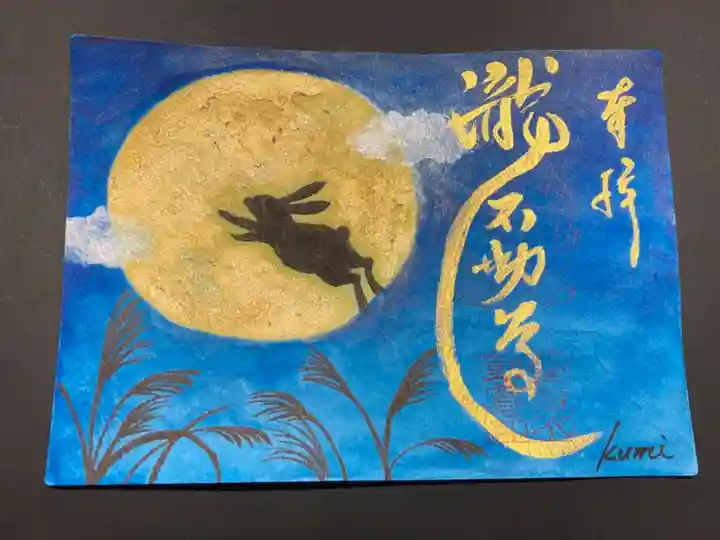 奉拝
瀧不動尊
Kumi